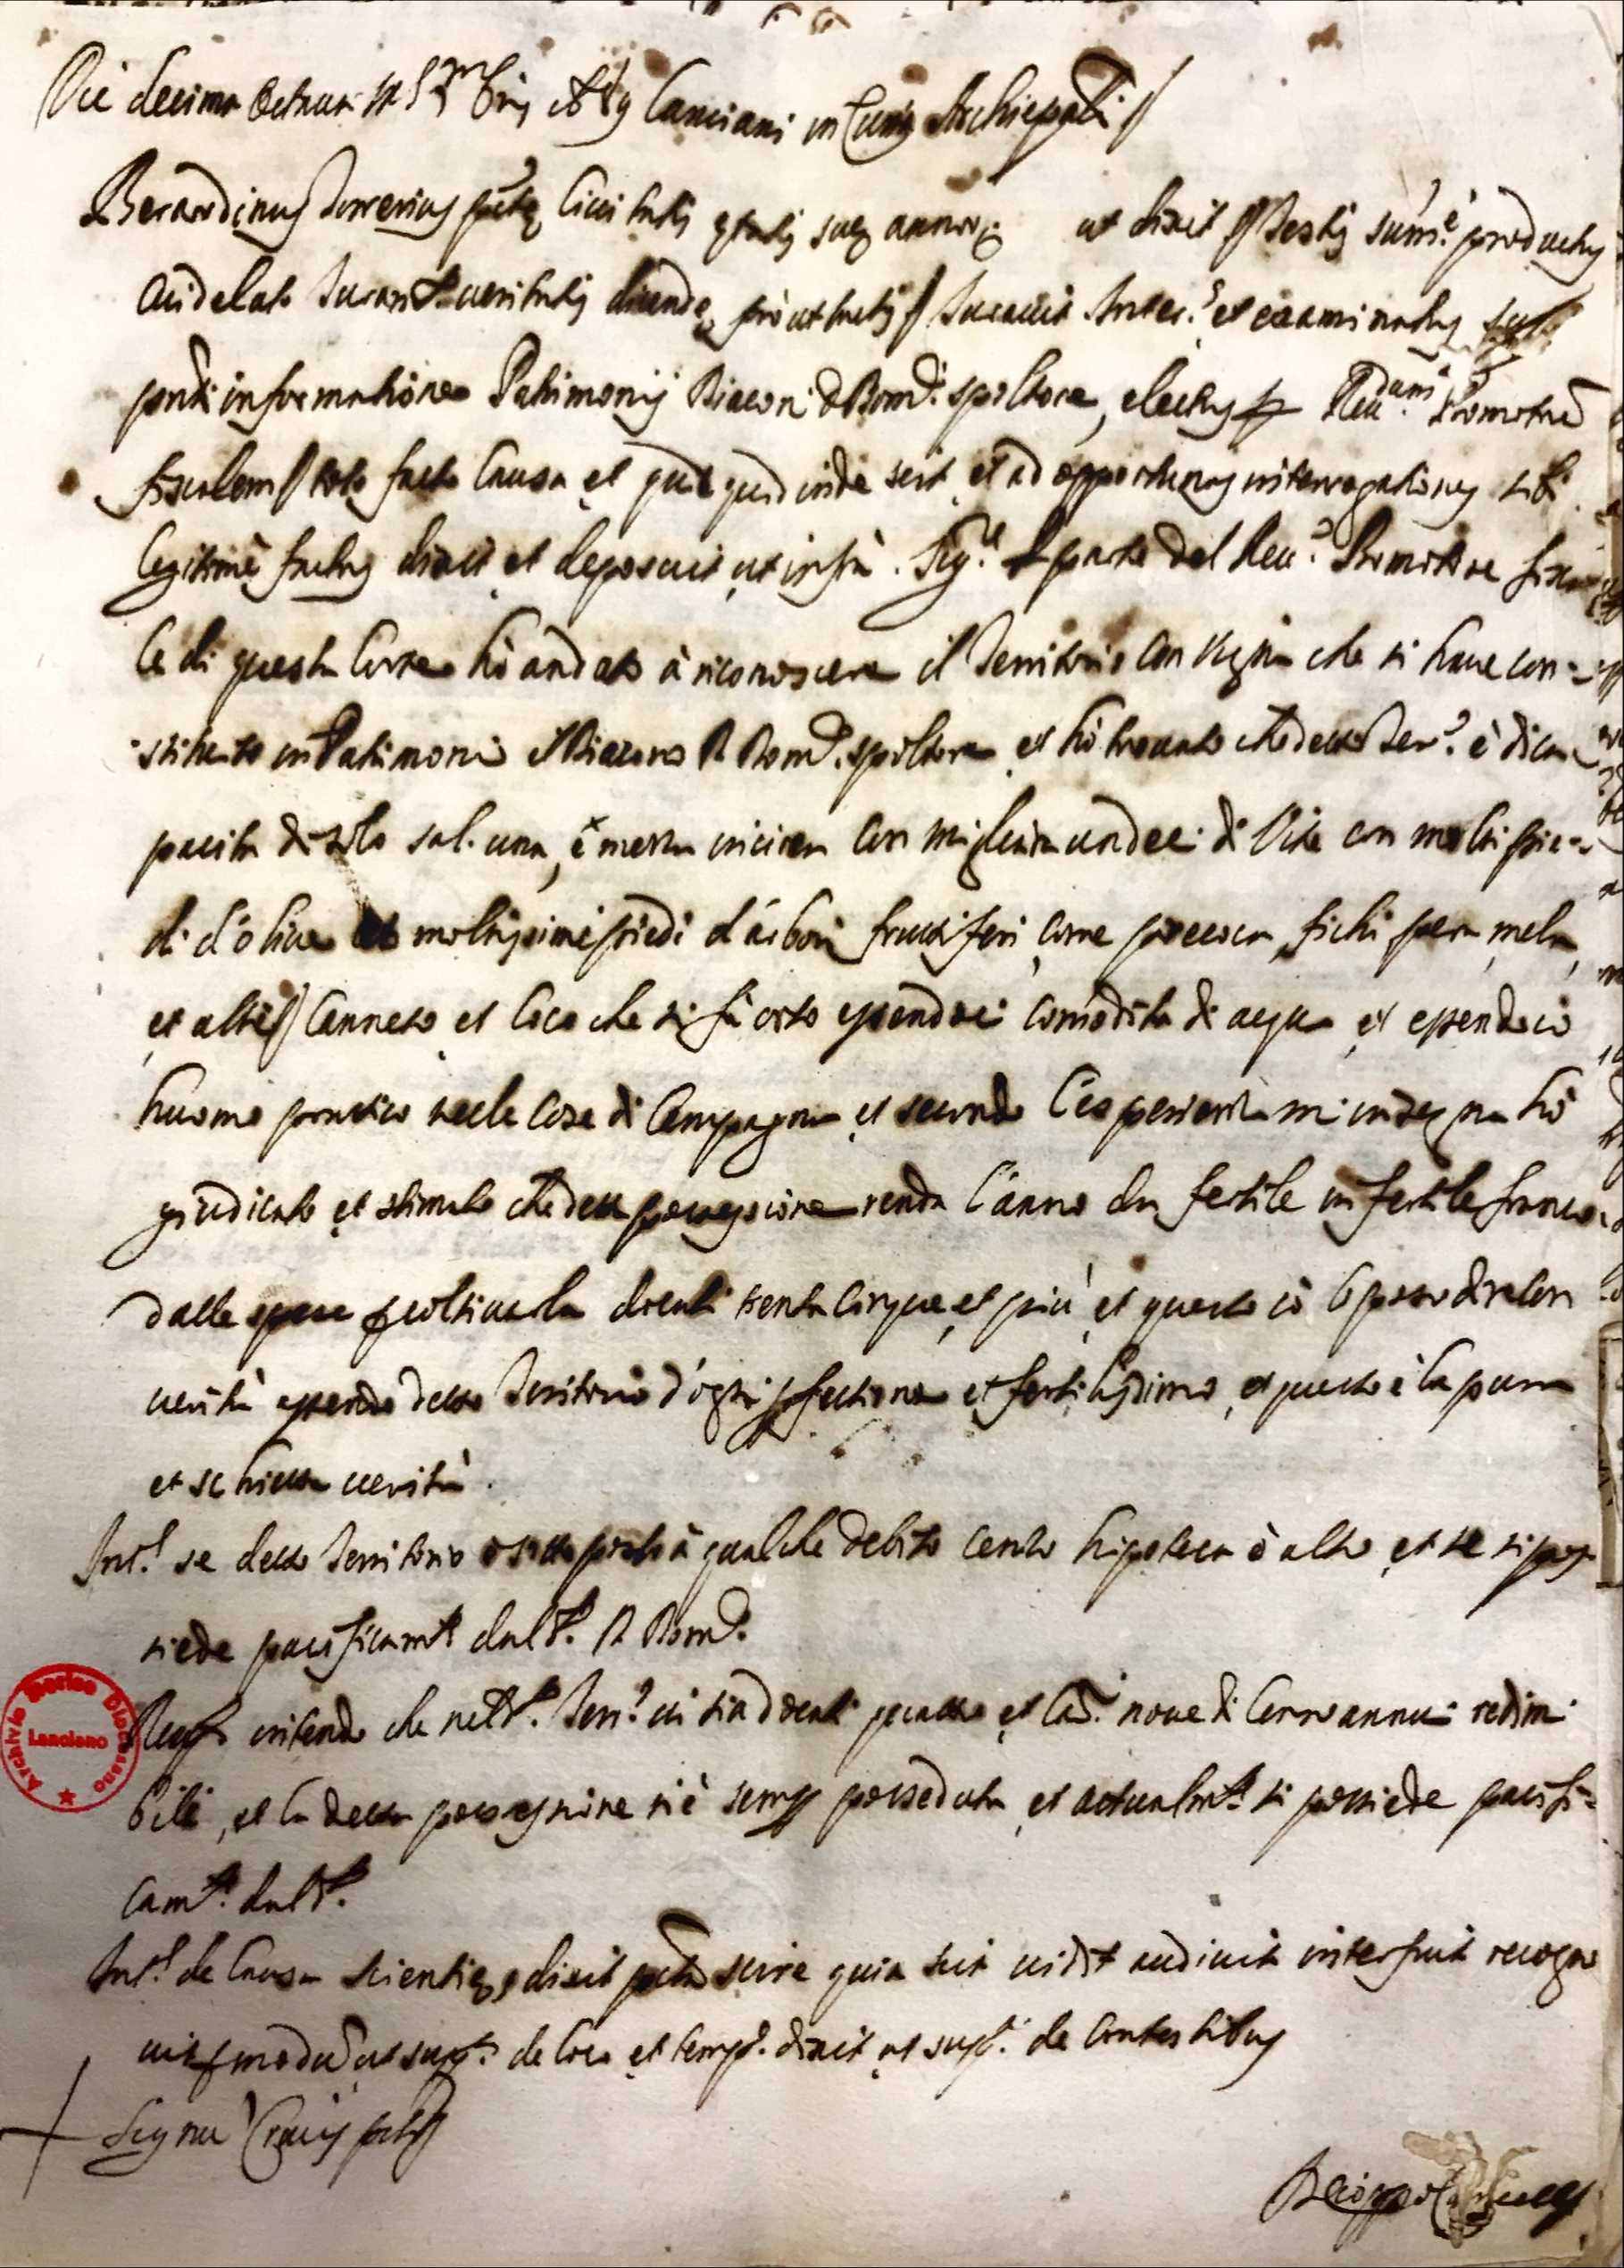 Die decima octava m.s 7mbris 1689 Lanciani in Curia Archiepali //
Berardinus Torrerius pñtis Civitatis etatis sue annorũ ut dixit // Testis sum.e productus
cui delato Juram.to veritatis dicende, prout tactis // Juravit Inter.s et examinatus sup.
pnti informatione Patrimonij Diaconi D Dom.ci spoltore, electus p Reu.dum Promotorẽ
fiscalem // toto facto Causa et quid quid inde scit, et ad opportunas interrogationes sibi
legitime factas dixit et deposuit ut infra. Sig.e p parte del Reu.o Promotore fisca
le di questa Corte hò andato à riconoscere il Territorio con vigna che si have con=
stituto in Patrimonio il Diacono D Dom.co spoltore et hò trovato che detto Ter.o è di ca
pacità di solo sal. una, è mezza incirca con migliara undeci di Vite con molti pie=
di d'olive et moltissimi piedi d'arbori fruttiferi, come precoca, fichi, pera, mela,
et altri // Canneto, et loco che si fà orto essendoci comodità di acqua et essendo io
huomo prattico nelle cose di Campagna et secondo l'esperienza mi insegna hò
giudicato et stimato che detta possessione renda l'anno da fertile in fertile franco
dalle spese p coltivarla docati trenta cinque, et più et questo io lo posso dire con
verità essendo detto Territorio d'ogni perfettione et fertilissimo, et questo è la pura
et schietta verità.
Int.s se detto Territorio è sottoposto à qualche debito cenzo hipoteca ò altro et se si pos
siede pacificam.te dal d.o D Dom.co
Resp.t intendo che nel d.o Terr.o vi sia docati quattro et Car.i nove di Cenzo annui redimi
bili, et la detta possessione si è semp posseduta, et actualm.te si possiede pacifi=
cam.te dal d.o
Int.s de Causa scientie, dixit pta scire quia scit vidit audivit interfuit recogno
vit p modũ ut sup.a de loco et temp.e dixit ut sup.a de contestibus
Signũ Crucis ptis
Archivio Storico Diocesano Lanciano